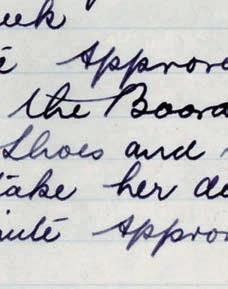 approve
the Board
Shoes and
take her de
inute approv